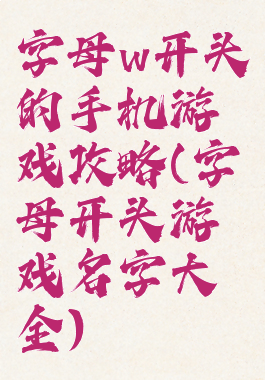 字母w开头
的手机游
戏攻略(字
母开头游
戏名字大
全)